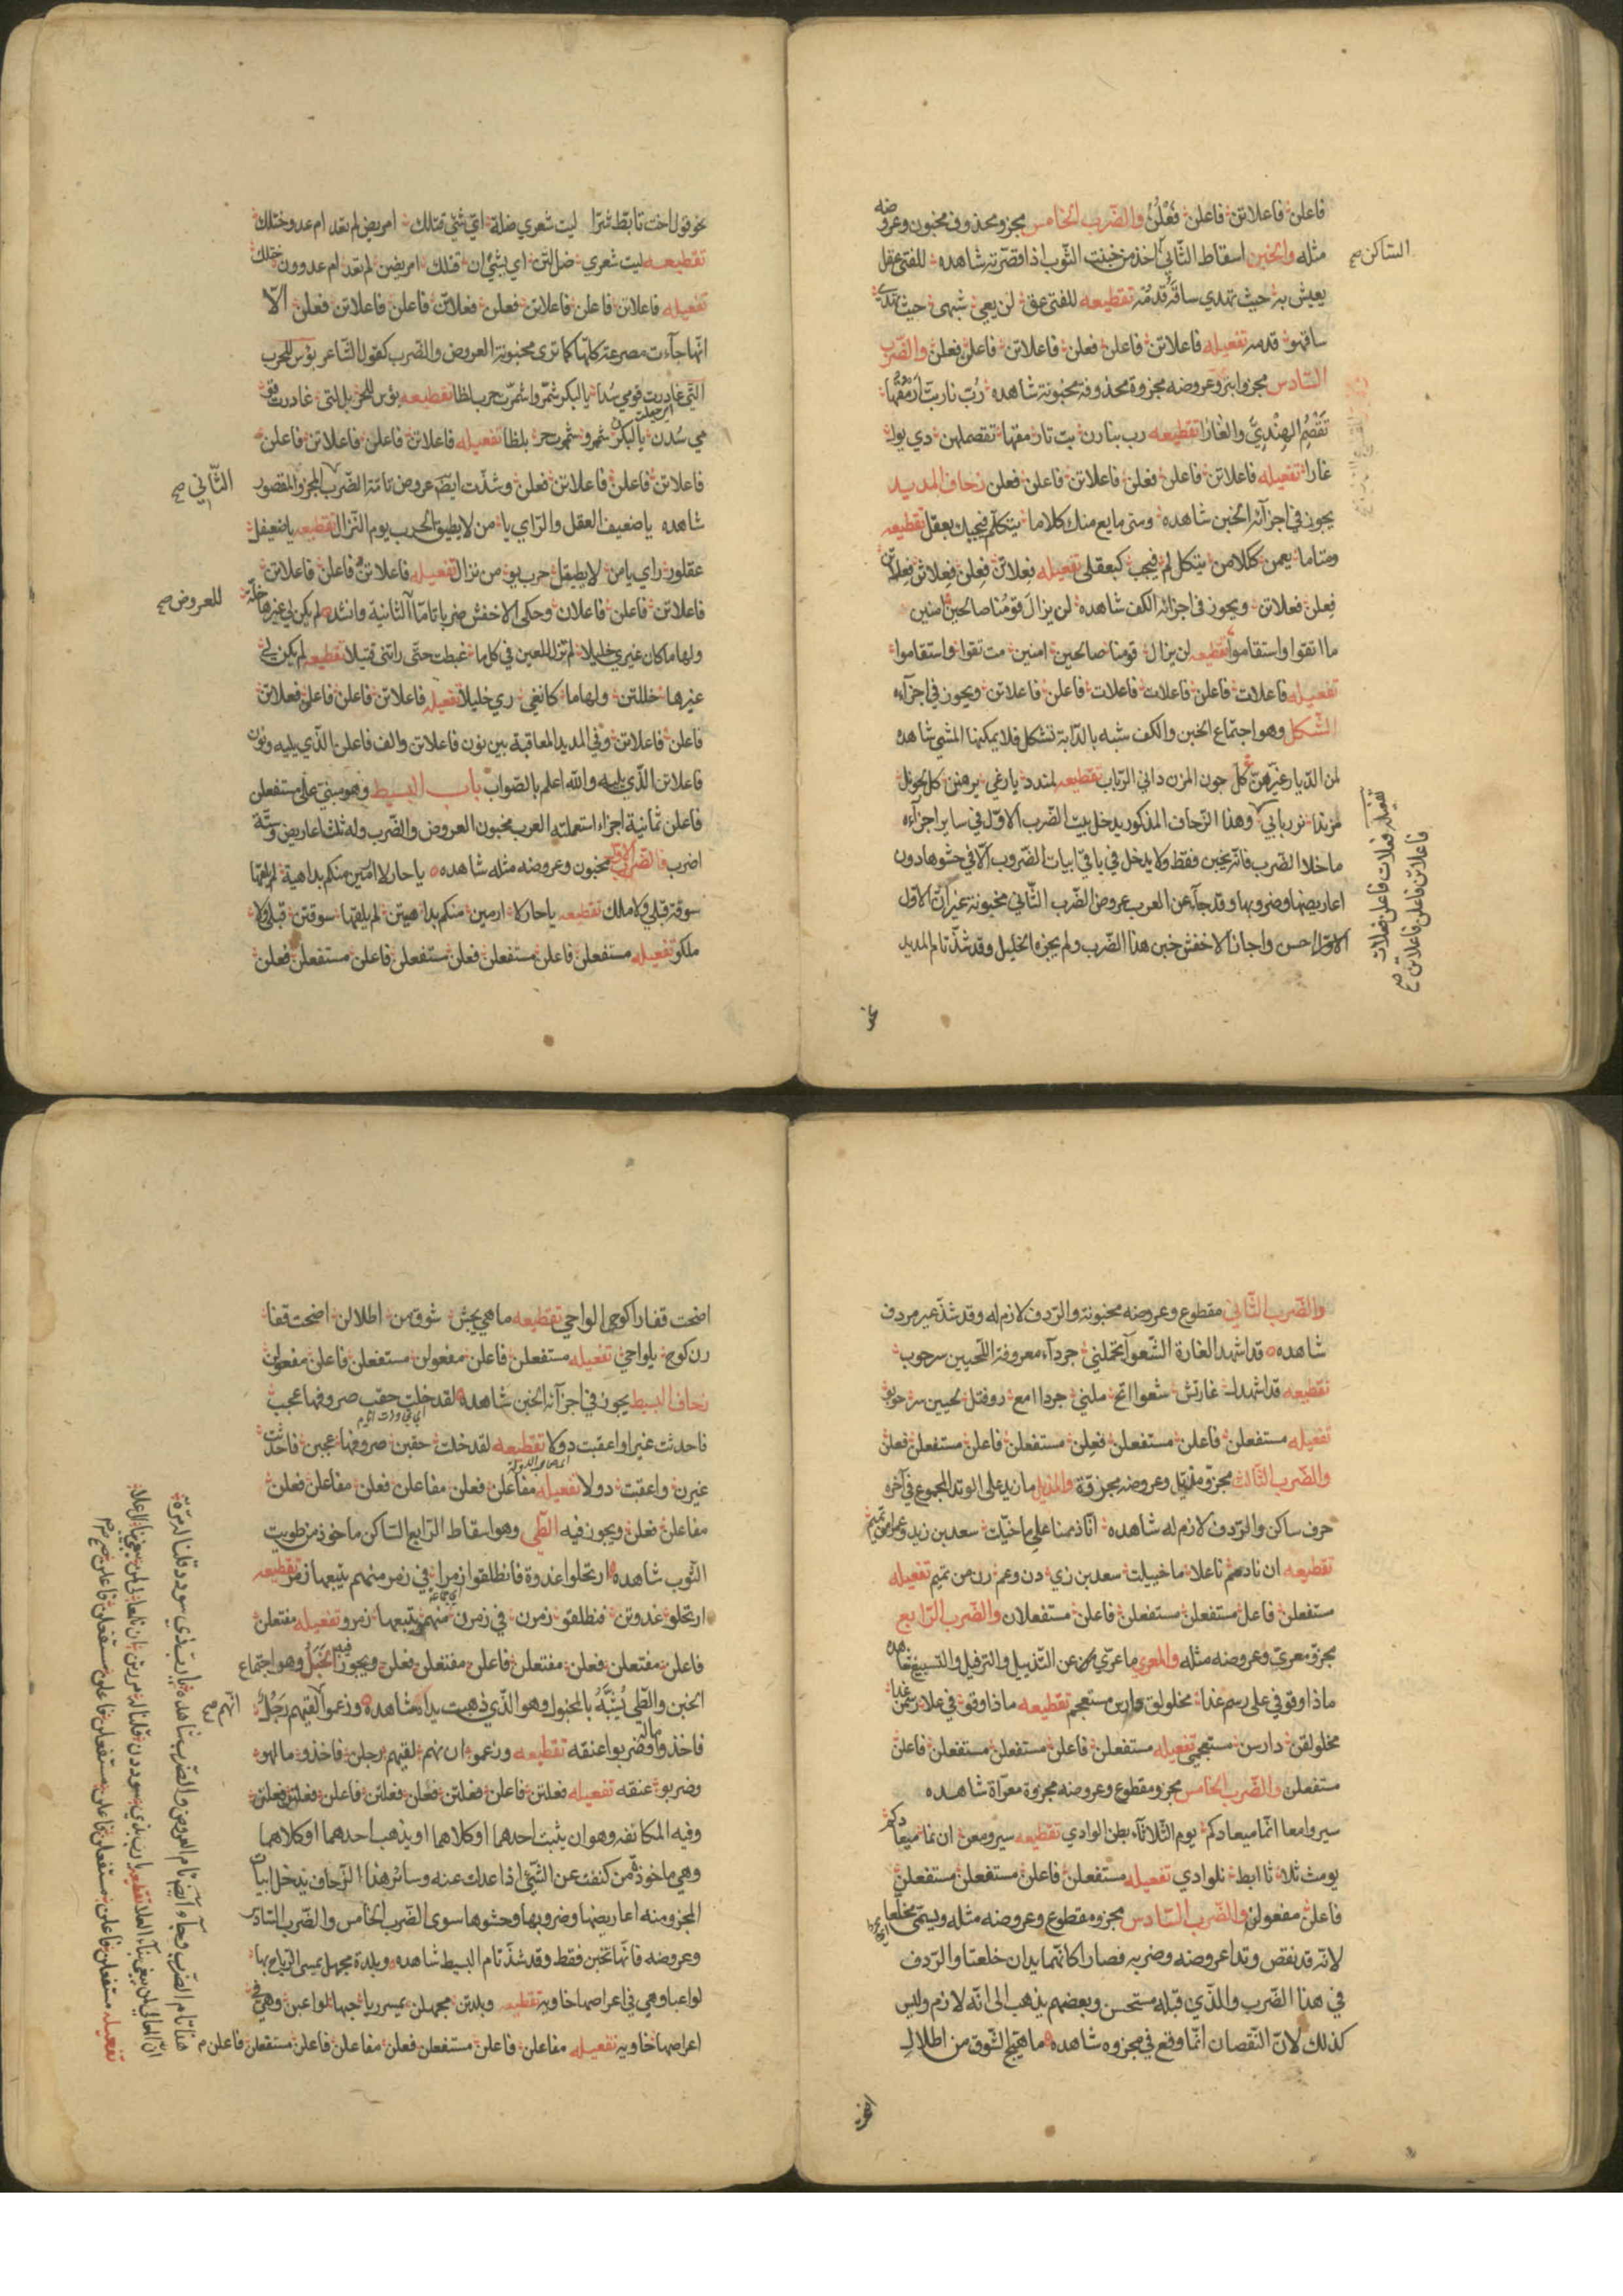 فاعلن فاعلاتن فاعلن فَعْلُن والضّرب الخامس مجزو محذوف مخبون وعروضه
مثله والخبن اسقاط الثّاني اخذ من خبنت الثّوب اذا قصّرته شاهده للفتى عقل
الساكن صح
يعيش به حيث تهدي ساقَه قدمُه تقطيعه للفتى عق لن يعي شبهى حيث تهدي
ساقهو قدمه تفعيله فاعلاتن فاعلن فعلن فاعلاتن فاعلن فعلن والضّرب
السّادس مجزو ابتر وعروضه مجزوة محذوفة مخبونة شاهده رُبّ نار بتّ ارمُقُها
تَقْضِمُ الهِنْدِيَّ والغارا تقطيعه رب بنارن بت تار مقها تقضملهن دي يول
غارا تفعيله فاعلاتن فاعلن فعلن فاعلاتن فاعلن فعلن زحاف المديد
يجوز في اجزآئه الخبن شاهده ومتى ما يع منك كلاما يتكلّم فيجبك بعقل تقطيعه
ومتاما يعمن ككلامن يتكل لم فيجب كبعقلى تفعيله فعلاتن فعلن فعلاتن فعلاتن
فعلن فعلاتن ويجوز في اجزائه الكف شاهده لن يزالَ قومُنا صالحين امنين
ما اتقوا واستقاموا تقطيعه لن يزال قومنا صالحين امنين مت تقوا واستقاموا
تفعيله فاعلات فاعلن فاعلات فاعلات فاعلن فاعلاتن ويجوز في اجزآءه
الشّكل وهو اجتماع الخبن والكف شبه بالدّابة تشكل فلا يمكنها المشي شاهده
لمن الدّيار غيّرهنّ كلّ جون المزن داني الرّباب تقطيعه لمندد يارغي يرهنن كل لجونل
مزندا نررباني وهذا الزّحاف المذكور يدخل بيت الضّرب الاوّل في ساير اجزآءه
تفعيله فعلات فاعلن فعلات
فاعلاتن فاعلن فاعلاتن صح
ما خلا الضّرب فانّه يخبن فقط ولا يدخل في باقي ابيات الضّروب الّا في حشوها دون
اعاريضها وضروبها وقد جآء عن العرب عروض الضّرب الثّاني مخبونة غير انّ الاوّل
الاوّل احسن واجاز الاخفش خبن هذا الضّرب ولم يجزه الخليل وقد شذّ تام المديد
نحو
نحو قول اخت تابّط شرّا ليت شعري ضلّة ايّ شئي قتلك امريض لم تعد ام عدو ختلك
تقطيعه ليت شعري ضل لتن اي يشئ ان قتلك امريضن لم تعد ام عدوون ختلك
تفعيله فاعلاتن فاعلن فاعلاتن فعلن فعلاتن فاعلن فاعلاتن فعلن الّا
انّها جاءت مصرعة كلّها كما ترى مخبونة العروض والضّرب كقول الشّاعر بؤس للحرب
الّتي غادرت قومي سُدا يالبكر شمّروا شمّرت حرب لظا تقطيعه بؤس للحر بل لتى غادرت قو
مي سُدن يالبكرن شمرو شمرت حر بلظا تفعيله فاعلاتن فاعلن فاعلاتن فاعلن
فاعلاتن فاعلن فاعلاتن فعلن وشذّت ايضّ عروض تامّة الضّرب المجزو المقصور
الثّاني صح
شاهده يا ضعيف العقل والرّاي يا من لا يطيق الحرب يوم النّزال تقطيعه يا ضعيفل
عقلور راي يامن لا يطيقل حرب يو من نزال تفعيله فاعلاتن فاعلن فاعلاتن
فاعلاتن فاعلن فاعلان وحكى الاخفش ضربا تامّا الثانية وانشد لم يكن لي غيرها خلّة
للعروض صح
ولها ما كان غيري خليلا لم تزل للعين في كل ما غبطت حتّى راتني قتيلا تقطيعه لم يكن لي
غيرها خللتن ولها ما كانغي ري خليلا تفعيله فاعلاتن فاعلن فاعلن فعلاتن
فاعلن فاعلاتن وفي المديد المعاقبة بين نون فاعلاتن والف فاعلن الّذي يليه ونون
فاعلاتن الذّي يليه والله اعلم بالصّواب باب البسيط وهو مبنيّ على مستفعلن
فاعلن ثمانية اجزاء استعملته العرب مخبون العروض والضّرب وله ثلث اعاريض وستّة
اضرب فالضّرب الاوّل مخبون وعروضه مثله شاهده يا حار لا ارمين منكم بداهية لم يلقها
سوقة قبلي ولا ملك تقطيعه يا حار لا ارمين منكم بدا هيتن لم يلقها سوقتن قبلي ولا
ملكو تفعيله مستفعلن فاعلن مستفعلن فعلن مستفعلن فاعلن مستفعلن فعلن
والضّرب الثّاني مقطوع وعروضه مخبونة والرّدف لازم له وقد شذّ غير مردف
شاهده قد اشهد الغارة الشّعوآ تحملني جردآء معروقة اللّحيين سرحوب
تقطيعه قد اشهدل غارتش شعوا اتح ملني جردا امع روقتل لحيين سرحوبو
تفعيله مستفعلن فاعلن مستفعلن فعِلن مستفعلن فاعلن مستفعلن فعلن
والضّرب الثّالث مجزوّ مذيّل وعروضه مجزوّة والمذيل ما زيد على الوتد المجموع في آخره
حرف ساكن والرّدف لازم له شاهده انّا ذممنا على ما خيّلت سعد بن زيد وعمرا من تميم
تقطيعه ان ناذمم ناعلا ما خييلت سعد بن زي دن وعم رن من تميم تفعيله
مستفعلن فاعلن مستفعلن مستفعلن فاعلن مستفعلان والضّرب الرّابع
مجزوّ معرىّ وعروضه مثله والمعرى ما عرّي من عن التّذييل والترفيل والتّسبيغ شاهده
ماذا وقوفي على رسم غدا مخلولق دارس مستعجم تقطيعه ماذا وقو في علا رسمن غدا
مخلولقن دارسن مستعجمي تفعيله مستفعلن فاعلن مستفعلن مستفعلن فاعلن
مستفعلن والضّرب الخامس مجزو مقطوع وعروضه مجزوة معرّاة شاهده
سيروا معا انّما ميعادكم يوم الثّلاثآء بطن الوادي تقطيعه سيرو معن ان نما ميعادكم
يومث ثلا ثا ابط نلوادي تفعيله مستفعلن فاعلن مستفعلن مستفعلن
فاعلن مفعولن والضّرب السّادس مجزوه مقطوع وعروضه مثله ويسمّى مخلّعا
لانّه قد نقص وتدا عروضه وضربه فصارا كانّهما يدان خلعتا والرّدف
في هذا الضّرب والذّي قبله مستحسن وبعضهم يذهب الى انّه لازم وليس
كذلك لانّ النّقصان انّما وقع في مجزوه شاهده ما هيّج الشّوق من اطلال
اضحت قفارا كوحي الواحي تقطيعه ما هي يجش شوقمن اطلالن اضحت قفا
رن كوح يلواحي تفعيله مستفعلن فاعلن مفعولن مستفعلن فاعلن مفعولن
زحاف البسيط يجوز في اجزآئه الخبن شاهده لقد خلت حقب صروفها عجب
فاحدثت غيرا واعقبت دولا تقطيعه لقد خلت حقبن صروفها عجبن فاحدثت
غيرن واعقبت دولا تفعيله مفاعلن فعلن مفاعلن فعلن مفاعلن فعلن
مفاعلن فعلن ويجوز فيه الطّي وهو اسقاط الرّابع السّاكن ماخوذ من طويت
الثّوب شاهده ارتحلوا غدوة فانطلقوا زمرا في زمر منهم يتبعها زمر تقطيعه
ارتحلو غدوتن فنطلقو زمرن في زمرن منهمو يتبعها زمرو تفعيله مفتعلن
فاعلن مفتعلن فعلن مفتعلن فاعلن مفتعلن فعلن ويجوز فيه الخَبْلُ وهو اجتماع
الخبن والطّي يُشَبّهُ بالمخبول وهو الذّي ذهبت يداه شاهده وزعموا لقيهم رَجُلٌ
انّهم صح
فاخذوا ماله وضربوا عنقه تقطيعه وزعمو ان نهم لقيهم رجلن فاخذو مالهو
وضربو عنقه تفعيله فعلتن فاعلن فعلتن فعلن فعلتن فاعلن فعلتن فعلن
وفيه المكانفة وهو ان يثبت احدهما او كلاهما او يذهب احدهما او كلاهما
وهي ماخوذة من كنفت عن الشّئي اذا عدلت عنه وسائر هذا الزّحاف يدخل ابيات
المجزو منه اعاريضها وضروبها وحشوها سوى الضّرب الخامس والضّرب السّادس
وعروضه فانّها تخبن فقط وقد شذّ تام البسيط شاهده وبلدة مجهل يمسي الرّياح بها
لواعبا وهي في اعراضها خاويه تقطيعه وبلدتن مجهلن يمسرريا حبها لواعبن وهي في
اعراضها خاويه تفعيله مفاعلن فاعلن مستفعلن فعلن مفاعلن فاعلن مستفعلن فاعلن
هذا تام الضّرب وجآء ايضّ تام العروض والضّرب شاهده
تفعيله مستفعلن فاعلن مستفعلن فاعلن مستفعلن فاعلن مستفعلن فاعلن صح